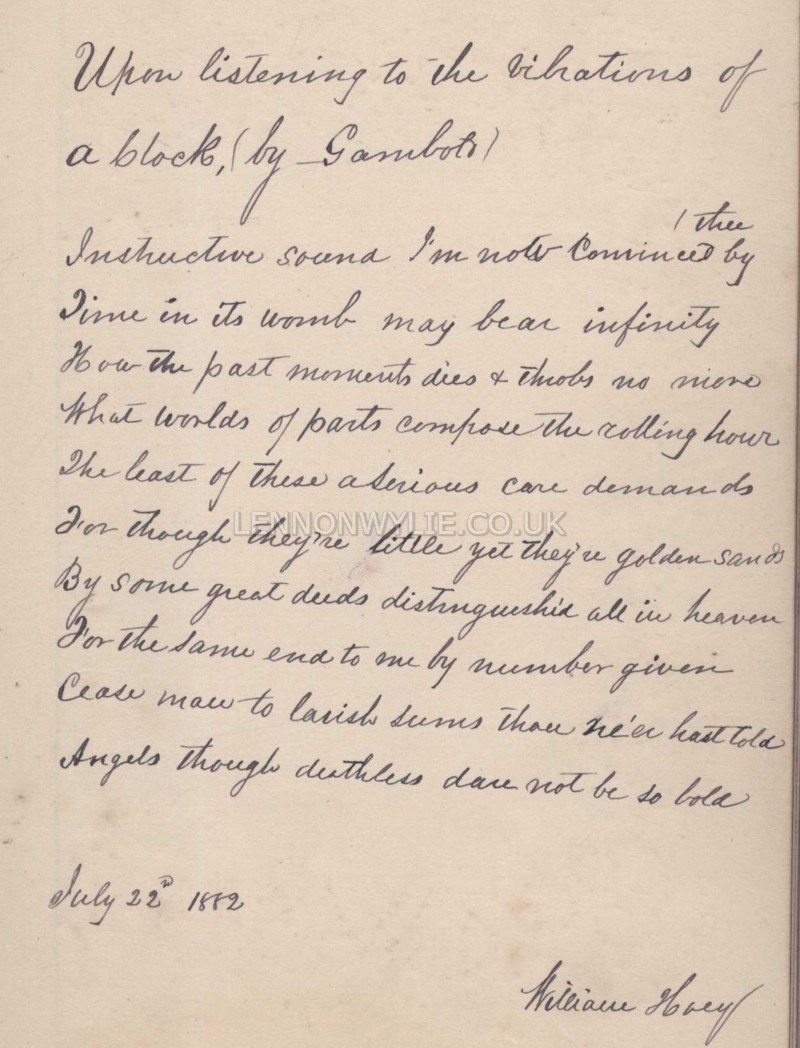 Upon listening to the vibrations of
a clock, (by Gambold)
Instructive sound I'm now convinced by
(thee
Time in its womb may bear infinity
How the past moments dies & throbs no more
What worlds of parts compose the rolling hour
The least of these a serious care demands
For though they're little yet they're golden sands
By some great deeds distinguish'd all in heaven
For the same end to me by number given
Cease man to lavish sums thou ne'er hast told
Angels though deathless dare not be so bold
LENNONWYLIE.CO.UK
July 22nd 1882
William Hoey